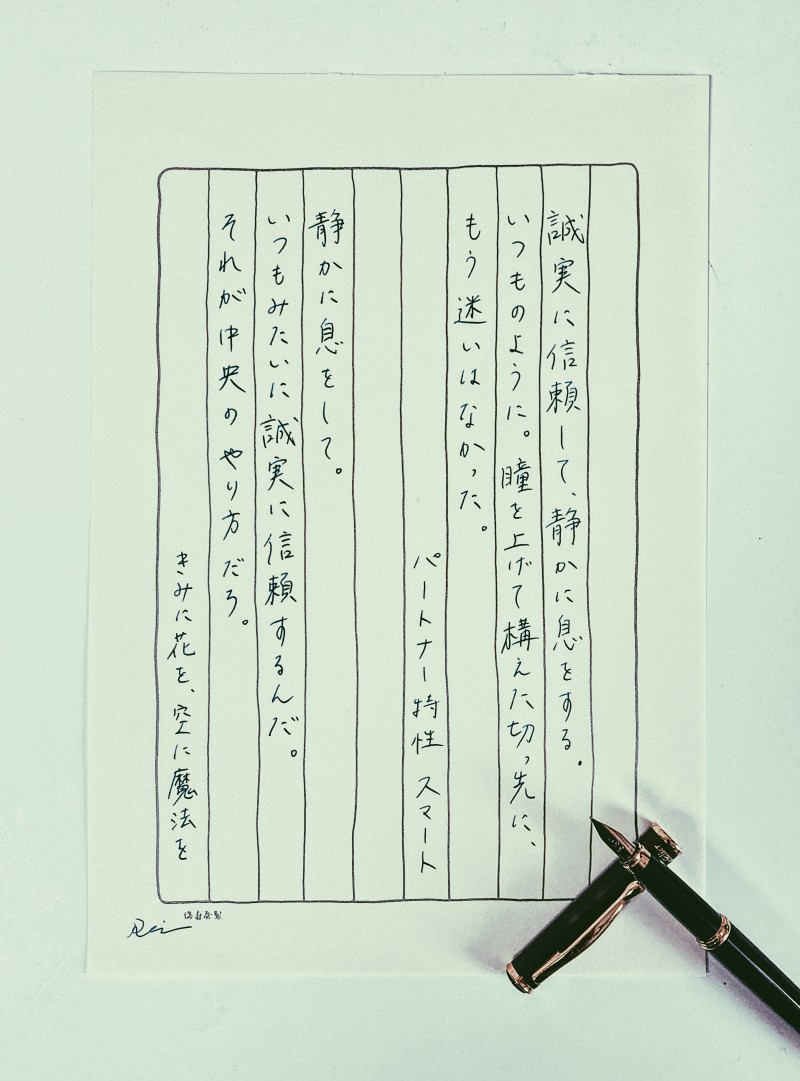 誠実に信頼して、静かに息をする。
いつものように。瞳を上げて構えた切っ先に、
もう迷いはなかった。
パートナー特性 スマート
静かに息をして。
いつもみたいに誠実に信頼するんだ。
それが中央のやり方だろ。
きみに花を、空に魔法を
Rei